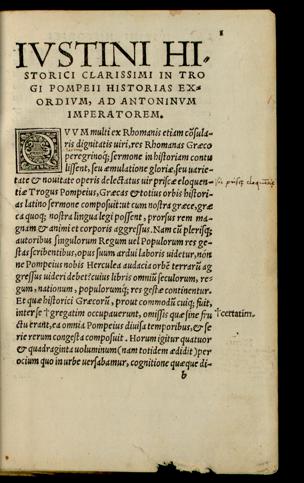 1
IVSTINI HI-
STORICI CLARISSIMI IN TRO
GI POMPEII HISTORIAS EX-
ORDIVM, AD ANTONINVM
IMPERATOREM.
CVVM multi ex Rhomanis etiã cõsula-
ris dignitatis uiri, res Rhomanas Græco
peregrinoq; sermone in historiam contu
lissent, seu æmulatione gloriæ, seu uarie-
tate & nouitate operis delectatus uir priscæ eloquen-
tiæ Trogus Pompeius, Græcas et totius orbis histori-
as latino sermone composuit: ut cum nostra græce, græ
ca quoq; nostra lingua legi possent, prorsus rem ma-
gnam & animi et corporis aggressus. Nam cũ plerisq;
autoribus singulorum Regum uel Populorum res ge-
stas scribentibus, opus suum ardui laboris uidetur, non
ne Pompeius nobis Herculea audacia orbẽ terrarũ ag
gressus uideri debet: cuius libris omniũ seculorum, re-
gum, nationum, populorumq; res gestæ continentur.
Et quæ historici Græcorũ, prout commodũ cuiq; fuit,
inter se †gregatim occupauerunt, omissis quæ sine fru
ctu erant, ea omnia Pompeius diuisa temporibus, & se
rie rerum congesta composuit. Horum igitur quatuor
& quadraginta uoluminum (nam totidem ædidit) per
ocium quo in urbe uersabamur, cognitione quæque di-
b
uir priscæ eloquentiæ
†certatim